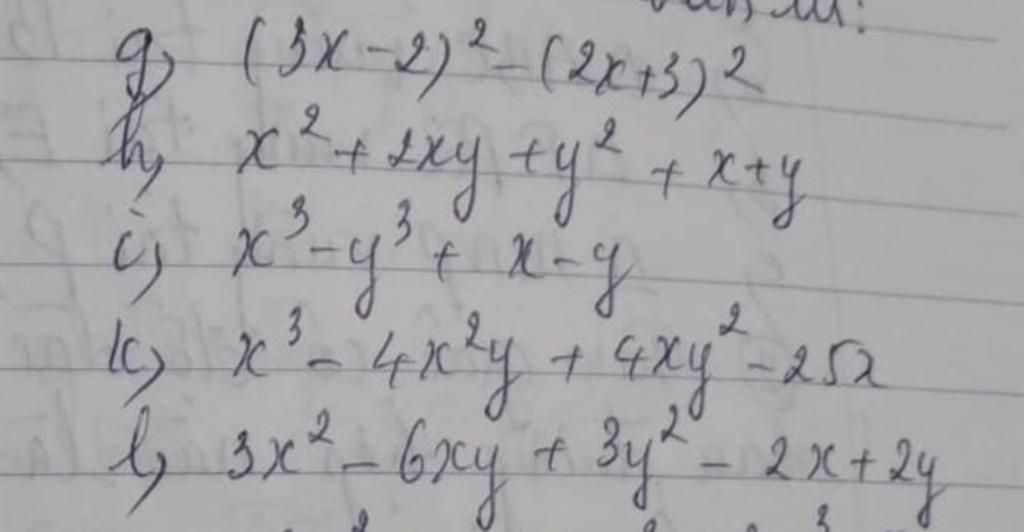 g) (3x-2)² - (2x+3)²
h) x² + 2xy + y² + x+y
i) x³ - y³ + x - y
k) x³ - 4x²y + 4xy² - 25x
l) 3x² - 6xy + 3y² - 2x + 2y